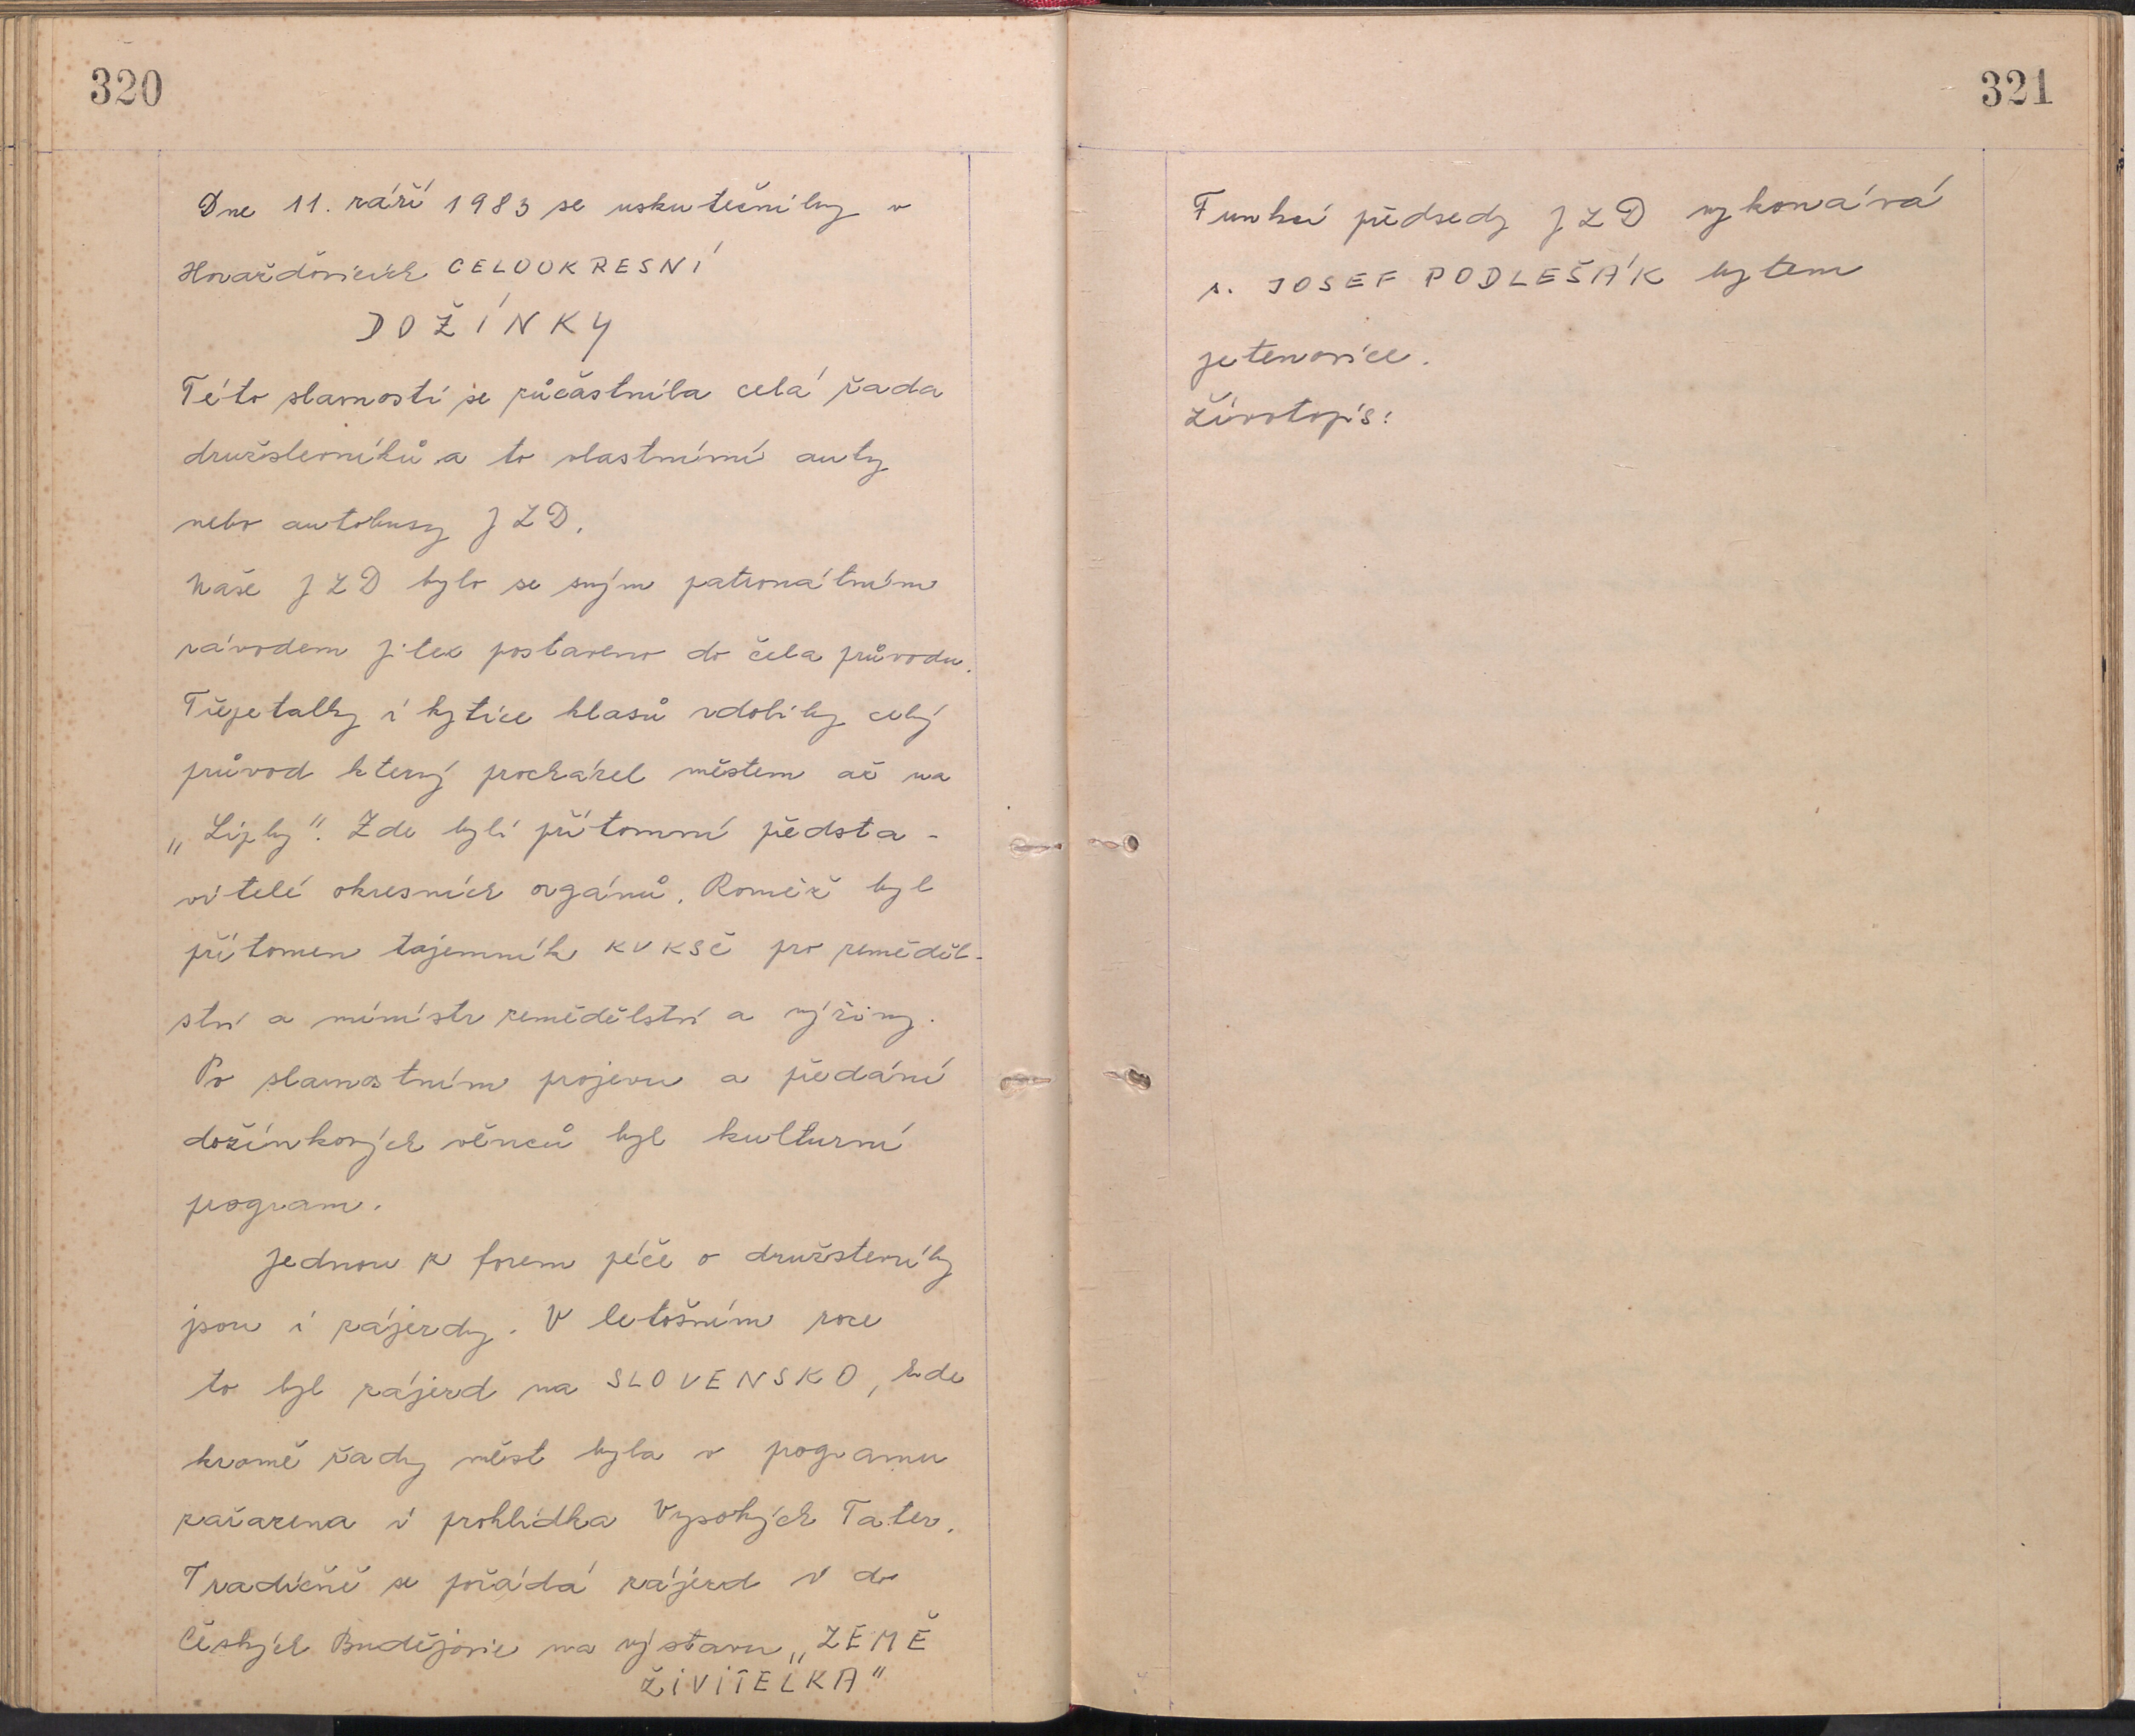 320
Dne 11. září 1983 se uskutečnily v
Horažďovicích CELOOKRESNÍ
DOŽÍNKY
Této slavnosti se zůčastnila celá řada
družstevníků a to vlastními auty
nebo autobusy JZD.
Naše JZD bylo se svým patronátním
závodem Jitex postaveno do čela průvodu.
Třepetalky i kytice klasů zdobily celý
průvod který procházel městem až na
„Lipky". Zde byli přítomni předsta-
vitelé okresních orgánů. Rovněž byl
přítomen tajemník KVKSČ pro zeměděl-
ství a ministr zemědělství a výživy.
Po slavnostním projevu a předání
dožínkových věnců byl kulturní
program.
Jednou z forem péče o družstevníky
jsou i zájezdy. V letošním roce
to byl zájezd na SLOVENSKO, kde
kromě řady měst byla v programu
zařazena i prohlídka Vysokých Tater.
Tradičně se pořádá zájezd i do
Českých Budějovic na výstavu „ZEMĚ
ŽIVITELKA"
321
Funkci předsedy JZD vykonává
s. JOSEF PODLEŠÁK bytem
Jetenovice.
Životopis: